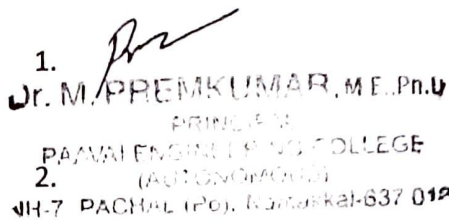 1.
Dr. M. PREMKUMAR, M.E., Ph.D
PRINCIPAL
PAAVAI ENGINEERING COLLEGE
2.
(AUTONOMOUS)
NH-7 PACHAL (Po), Namakkal-637 018